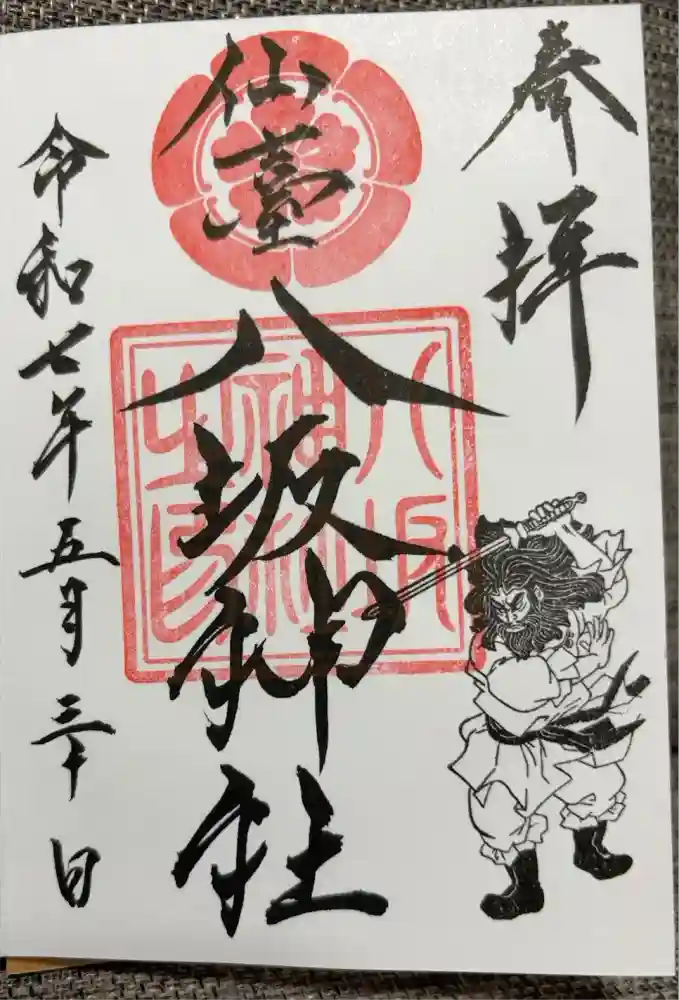 奉拝
仙臺
八坂神社
八坂神社之印
令和七年五月三十日